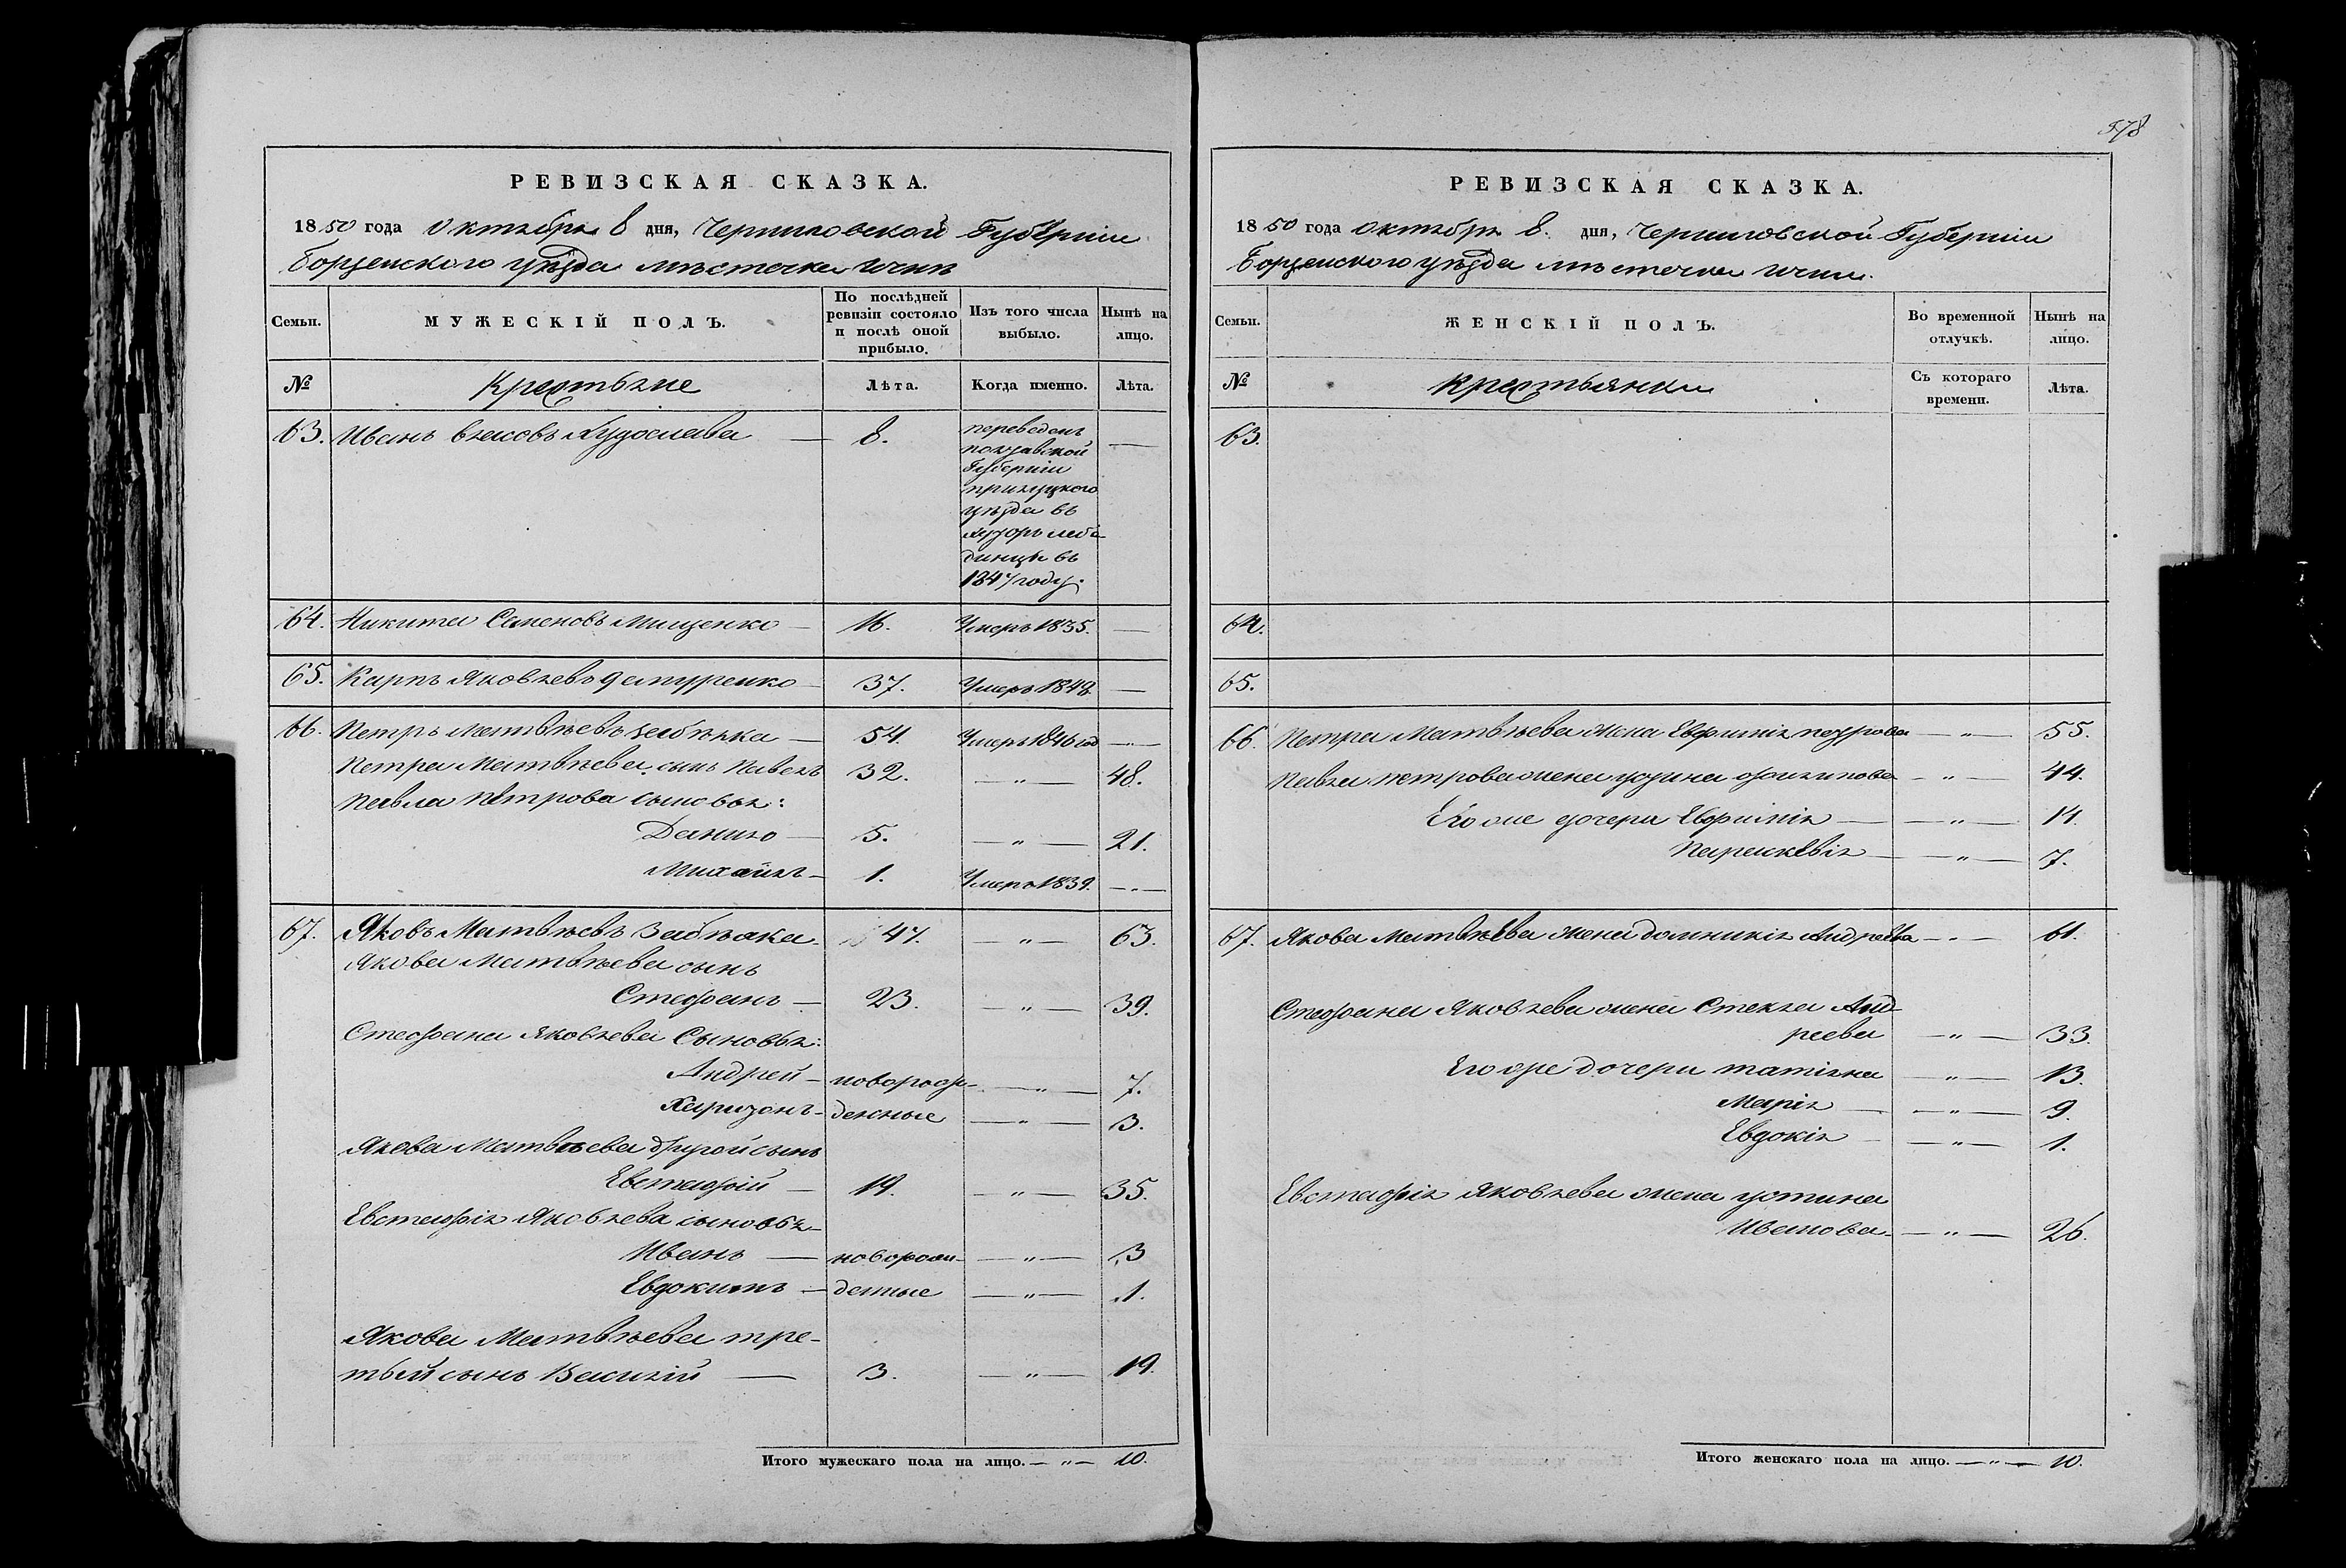 РЕВИЗСКАЯ СКАЗКА.
1850 года Октября 8 дня, Черниговской Губерніи
Борзенского уѣзда мѣстечка Ични
Семьи.
МУЖЕСКІЙ ПОЛЪ.
По послѣдней ревизіи состояло и послѣ оной прибыло.
Изъ того числа выбыло.
Нынѣ на лицо.
№
Крестьяне
Лѣта.
Когда именно.
Лѣта.
63. Иванъ 8. —
переведенъ
полтавской
Губерніи
прилуцкого
уѣзда въ
хуторъ леби-
динци въ
1847 году.
64. Никита Семеновъ Мищенко — 16. Умеръ 1835. —
65. Карпъ Яковлевъ — 37. Умеръ 1848. —
66. Петръ Матвѣевъ Забѣяка — 54. Умеръ 1846 год —„—
Петра Матвѣева сынъ Павелъ 32. —„— 48.
Павла Петрова сыновья:
Данило — 5. —„— 21.
Михаилъ — 1. Умеръ 1839. —„—
67. Яковъ Матвѣевъ Забѣяка. 47. —„— 63.
Якова Матвѣева сынъ
Стефанъ — 23. —„— 39.
Стефана Яковлева Сыновья:
Андрей — новорож- —„— 7.
Харитонъ — денные —„— 3.
Якова Матвѣева другой сынъ
Евстафій — 19. —„— 35.
Евстафія Яковлева сыновья —
Иванъ — новорож- —„— 3
Евдокимъ — денные —„— 1.
Якова Матвѣева тре-
тьй сынъ Василій — 3. —„— 19.
Итого мужескаго пола на лицо. —„— 10.
578
РЕВИЗСКАЯ СКАЗКА.
1850 года Октября 8. дня, Черниговской Губерніи
Борзенского уѣзда мѣстечка Ични.
Семьи.
ЖЕНСКІЙ ПОЛЪ.
Во временной отлучкѣ.
Нынѣ на лицо.
№
Крестьянки
Съ котораго времени.
Лѣта.
63.
64.
65.
66. Петра Матвѣева жена Евфимія —„— 55.
Павла Петрова жена —„— 44.
Его же дочери Евфимія — —„— 11.
Параскевія — —„— 7.
67. Якова Матвѣева жена Домникія Андреева —„— 61.
Стефана Яковлева жена Стекла Анд-
реева —„— 33.
Его же дочери татіяна —„— 13.
Марія — —„— 9.
Евдокія — —„— 1.
Евстафія Яковлева жена устина
Иванова. —„— 26.
Итого женскаго пола на лицо. —„— 10.